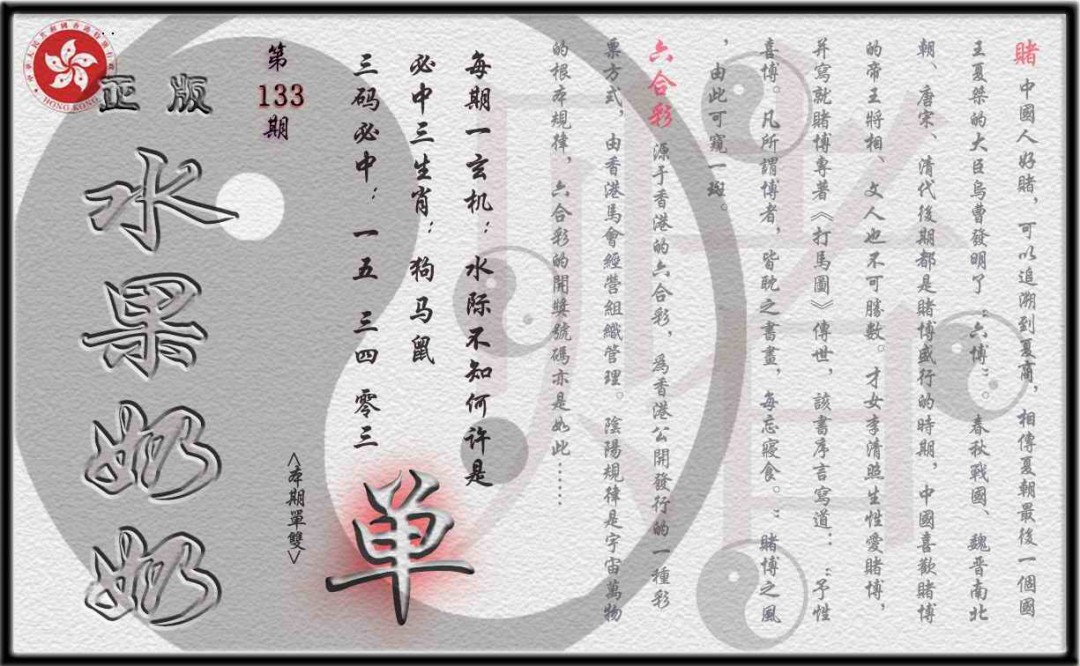 賭 中國人好賭，可以追溯到夏商，相傳夏朝最後一個國
王夏桀的大臣烏曹發明了“六博”。春秋戰國、魏晉南北
朝、唐宋、清代後期都是賭博盛行的時期，中國喜歡賭博
的帝王將相、文人也不可勝數。才女李清照生性愛賭博，
并寫就賭博專著《打馬圖》傳世，該書序言寫道：“予性
喜博。凡所謂博者，皆耽之書畫，每忘寢食。”賭博之風
，由此可窺一斑。
六合彩 源于香港的六合彩，爲香港公開發行的一種彩
票方式，由香港馬會經營組織管理。陰陽規律是宇宙萬物
的根本規律，六合彩的開獎號碼亦是如此……
每期一玄机：水际不知何许是
必中三生肖：狗马鼠
三码必中：一五 三四 零三
单
<本期單雙>
第
133
期
正版
水果奶奶
HONG KONG